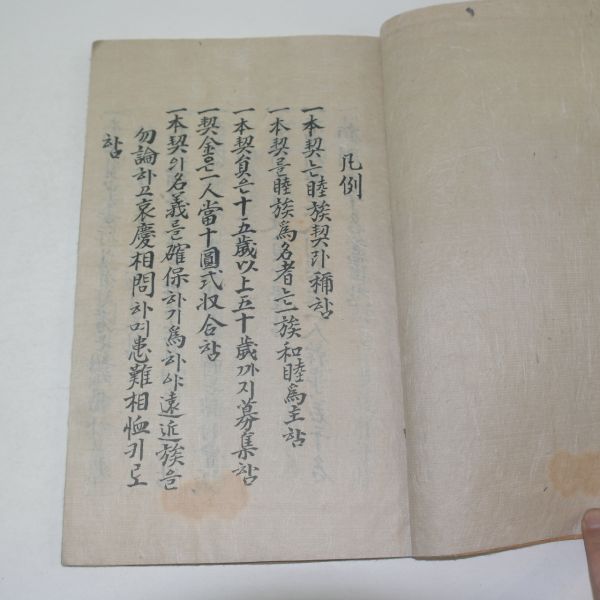 凡例
一本契는睦族契라稱함
一本契를睦族爲名者는一族和睦爲主함
一本契員은十五歲以上五十歲까지募集함
一契金은一人當十圓式收合함
一本契의名義를確保하기爲하야遠近族을
勿論하고哀慶相問하며患難相恤키로
함